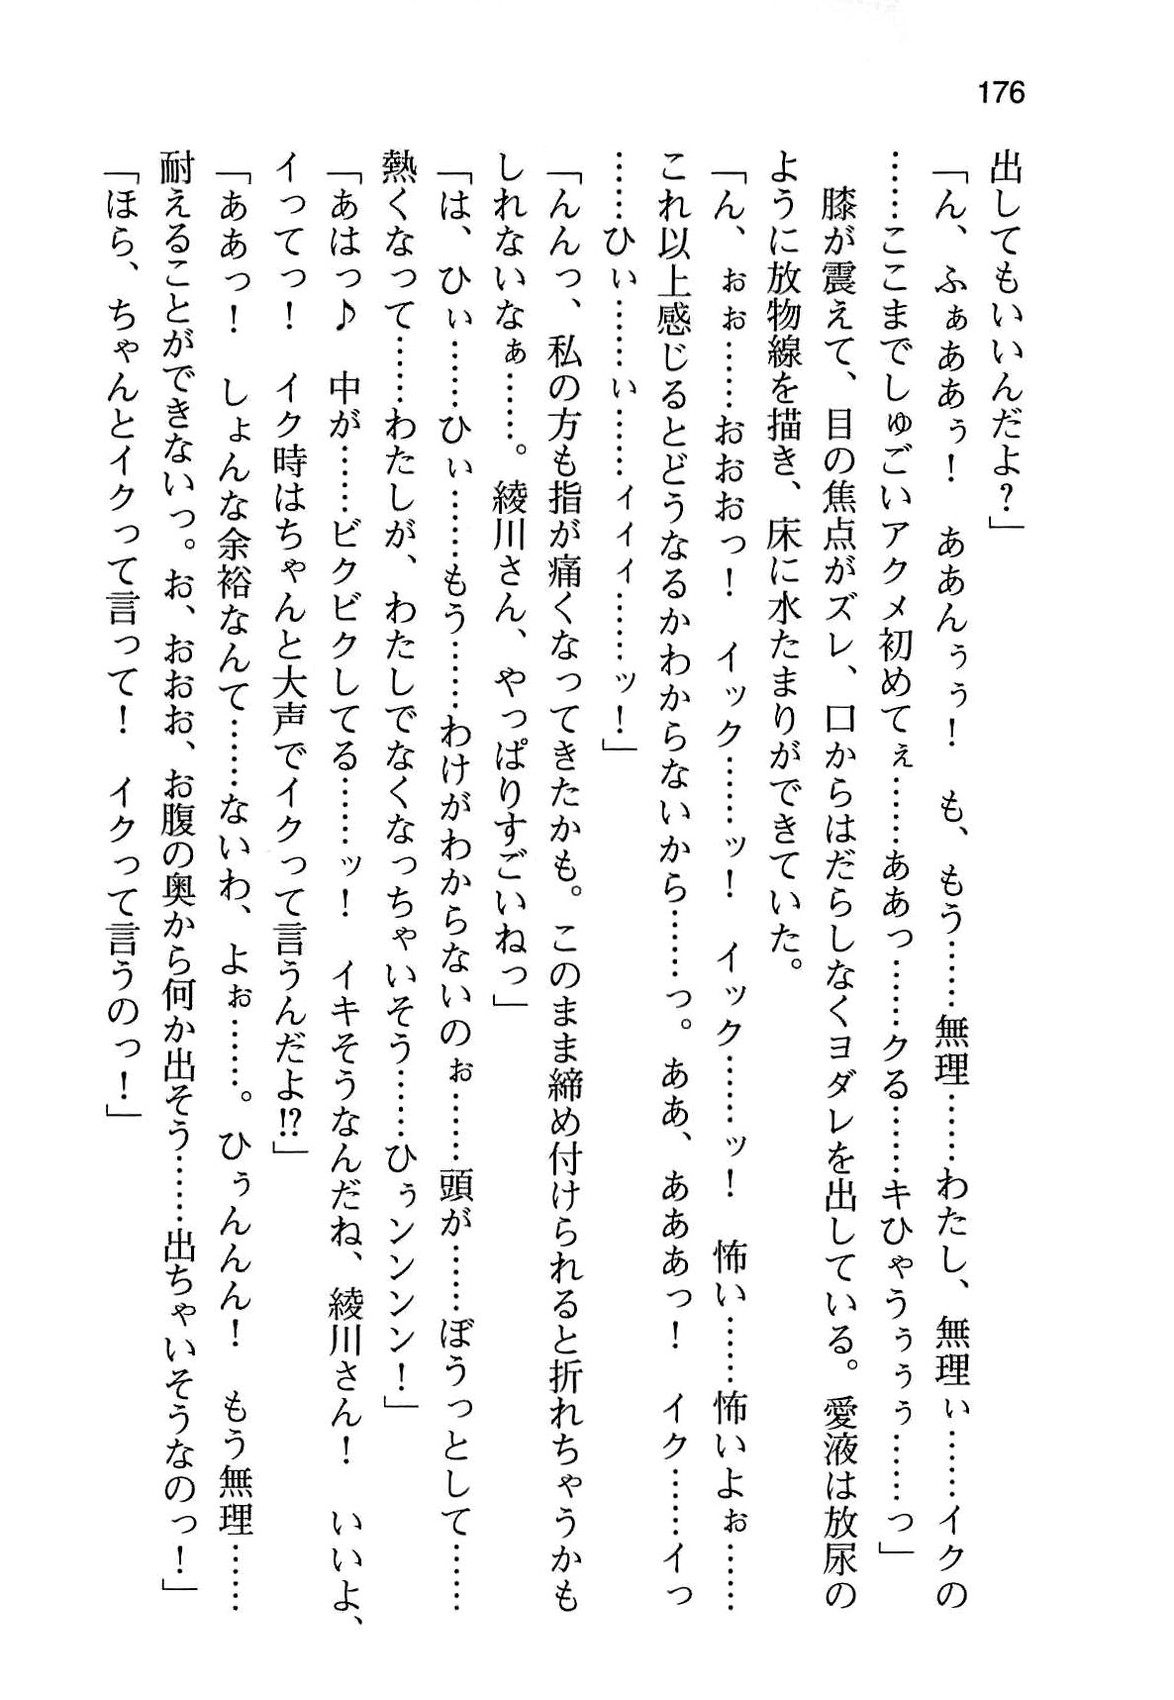 176
出してもいいんだよ？」
「ん、ふぁああぅ！　ああんぅぅ！　も、もう……無理……わたし、無理ぃ……イクの
……ここまでしゅごいアクメ初めてぇ……ああっ……クる……キひゃうぅぅぅ……っ」
　膝が震えて、目の焦点がズレ、口からはだらしなくヨダレを出している。愛液は放尿の
ように放物線を描き、床に水たまりができていた。
「ん、ぉぉ……おおおっ！　イック……ッ！　イック……ッ！　怖い……怖いよぉ……
これ以上感じるとどうなるかわからないから……っ。ああ、あああっ！　イク……イっ
……ひぃ……ぃ……ィィィ……ッ！」
「んんっ、私の方も指が痛くなってきたかも。このまま締め付けられると折れちゃうかも
しれないなぁ……。綾川さん、やっぱりすごいねっ」
「は、ひぃ……ひぃ……もう……わけがわからないのぉ……頭が……ぼうっとして……
熱くなって……わたしが、わたしでなくなっちゃいそう……ひぅンンンン！」
「あはっ♪　中が……ビクビクしてる……ッ！　イキそうなんだね、綾川さん！　いいよ、
イってっ！　イク時はちゃんと大声でイクって言うんだよ!?」
「ああっ！　しょんな余裕なんて……ないわ、よぉ……。ひぅんんん！　もう無理……
耐えることができないっ。お、おおお、お腹の奥から何か出そう……出ちゃいそうなのっ！」
「ほら、ちゃんとイクって言って！　イクって言うのっ！」